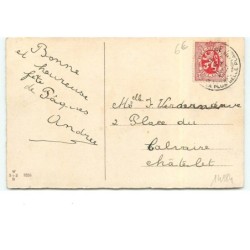 Bonne
et heureuse
fête
de Pâques
Andrée
66
Melle J. Vanderveken
2 Place du
Calvaire
Châtelet